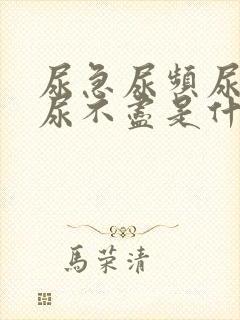 尿急尿頻尿
尿不盡是什
馬荣清